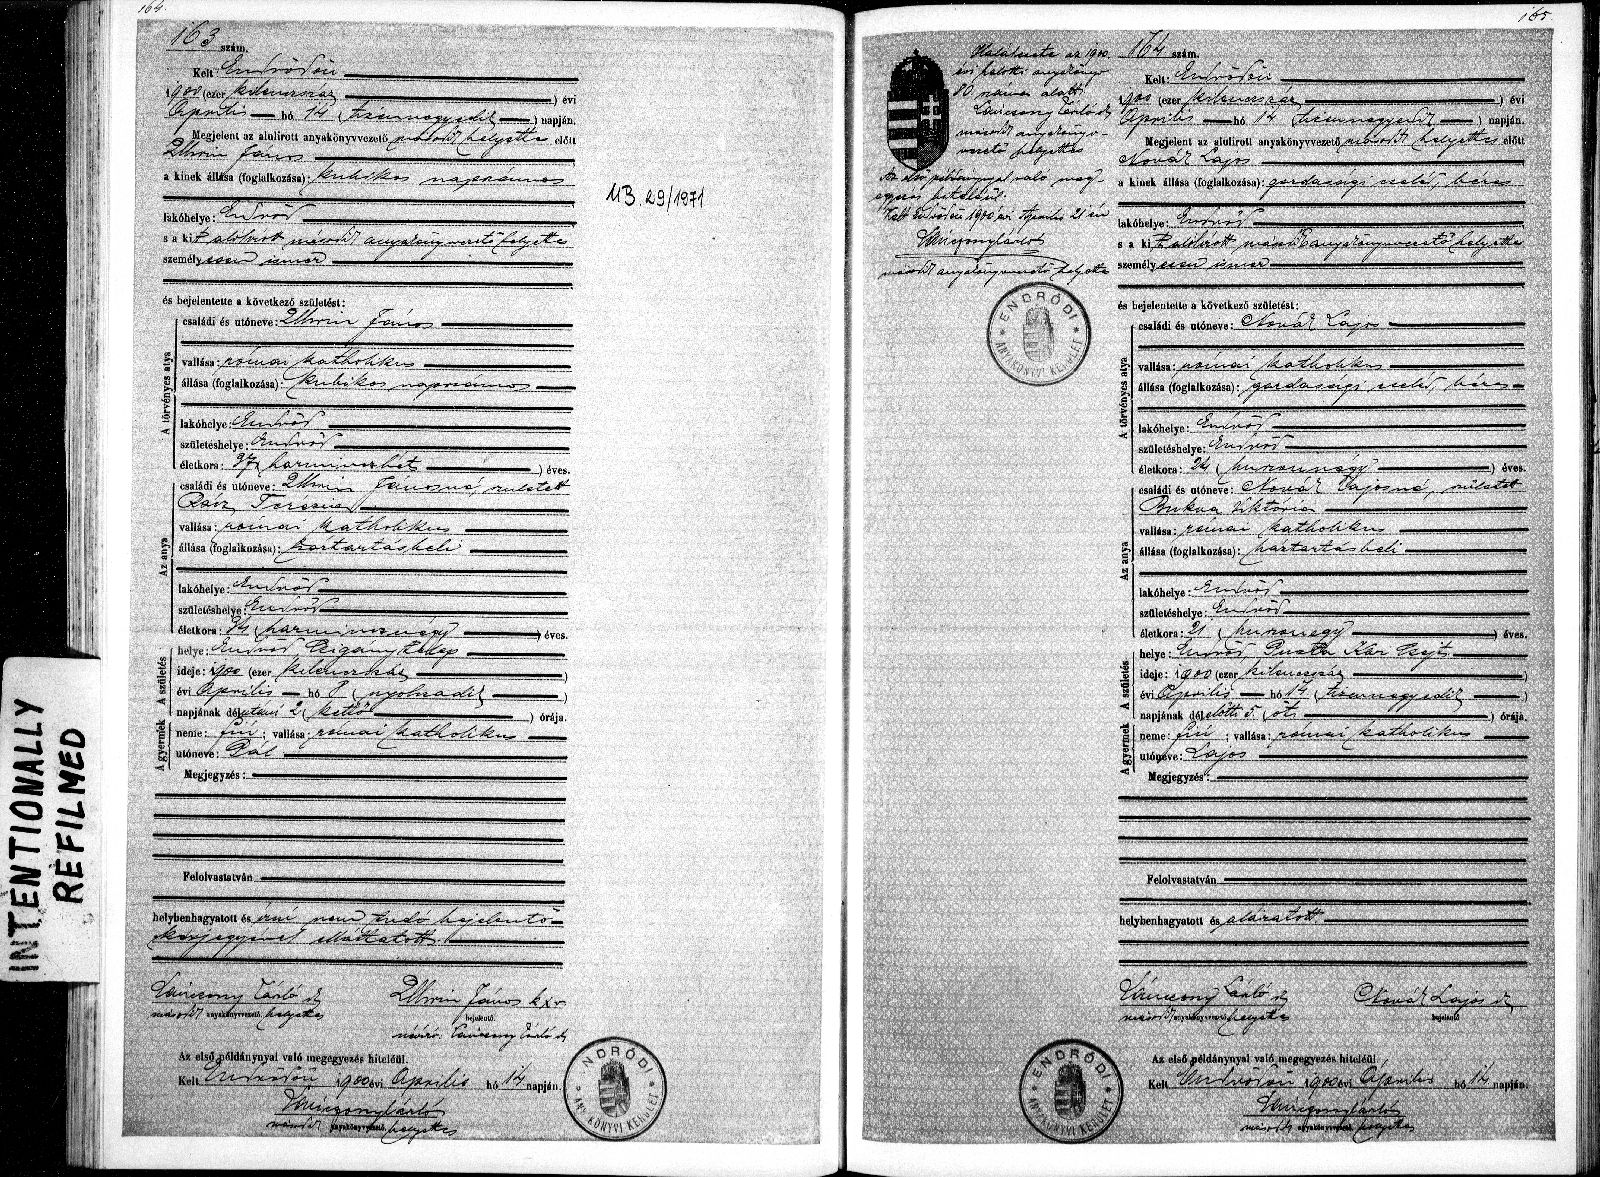 164.
163 szám.
Kelt Endrődön
1900 (ezer kilenczszáz) évi
Április hó 14 (tizennegyedik) napján.
Megjelent az alulirott anyakönyvvezető másodk helyettes előtt
János
a kinek állása (foglalkozása): kubikos napszámos
lakóhelye: Endrőd
s a kit alólirott másodk anyakönyvvezető helyettes
személyesen ismer
és bejelentette a következő születést:
A törvényes atya
családi és utóneve: János
vallása: római katholikus
állása (foglalkozása): kubikos napszámos
lakóhelye: Endrőd
születéshelye: Endrőd
életkora: 37 (harminczhét) éves.
Az anya
családi és utóneve: Jánosné, született
vallása: római katholikus
állása (foglalkozása): háztartásbeli
lakóhelye: Endrőd
születéshelye: Endrőd
életkora: 34 (harmincznégy) éves.
A születés
helye: Endrőd
ideje: 1900 (ezer kilenczszáz)
évi Április hó 8 (nyolczadik)
napjának délutáni 2 (kettő) órája.
A gyermek
neme: fiú; vallása: római katholikus
utóneve: Pál
Megjegyzés:
Felolvastatván
helybenhagyatott és írni nem tudó bejelentő
kézjegyével elláttatott.
Lánczony Tárló
János
másodk anyakönyvvezető helyettes
bejelentő.
névíró:
Az első példánynyal való megegyezés hiteléül.
Kelt Endrődön 1900 évi Április hó 14 napján.
másodk anyakönyvvezető helyettes
ENDRŐDI
ANYAKÖNYVI KERÜLET
MB 29/1971
INTENTIONALLY
REFILMED
165.
az 1900.
évi halotti anyakönyv
80 szám alatt
másodk anyakönyv-
vezető helyettes
Az első példánynyal való meg
egyezés hiteléül.
Kelt Endrődön 1900 évi Április 21 én
másodk anyakönyvvezető helyettes
ENDRŐDI
ANYAKÖNYVI KERÜLET
164 szám.
Kelt: Endrődön
1900 (ezer kilenczszáz) évi
Április hó 14 (tizennegyedik) napján.
Megjelent az alulirott anyakönyvvezető másodk helyettes előtt
Novák Lajos
a kinek állása (foglalkozása): gazdasági cseléd, béres
lakóhelye: Endrőd
s a kit alólirott másodk anyakönyvvezető helyettes
személyesen ismer
és bejelentette a következő születést:
A törvényes atya
családi és utóneve: Novák Lajos
vallása: római katholikus
állása (foglalkozása): gazdasági cseléd, béres
lakóhelye: Endrőd
születéshelye: Endrőd
életkora: 24 (huszonnégy) éves.
Az anya
családi és utóneve: Novák Lajosné, született
Viktória
vallása: római katholikus
állása (foglalkozása): háztartásbeli
lakóhelye: Endrőd
születéshelye: Endrőd
életkora: 21 (huszonegy) éves.
A születés
helye: Endrőd, Puszta
ideje: 1900 (ezer kilenczszáz)
évi Április hó 14 (tizennegyedik)
napjának délelőtti 5 (öt) órája.
A gyermek
neme: fiú; vallása: római katholikus
utóneve: Lajos
Megjegyzés:
Felolvastatván
helybenhagyatott és aláíratott.
Novák Lajos
másodk anyakönyvvezető helyettes
bejelentő
Az első példánynyal való megegyezés hiteléül.
Kelt Endrődön 1900 évi Április hó 14 napján.
másodk anyakönyvvezető helyettes
ENDRŐDI
ANYAKÖNYVI KERÜLET